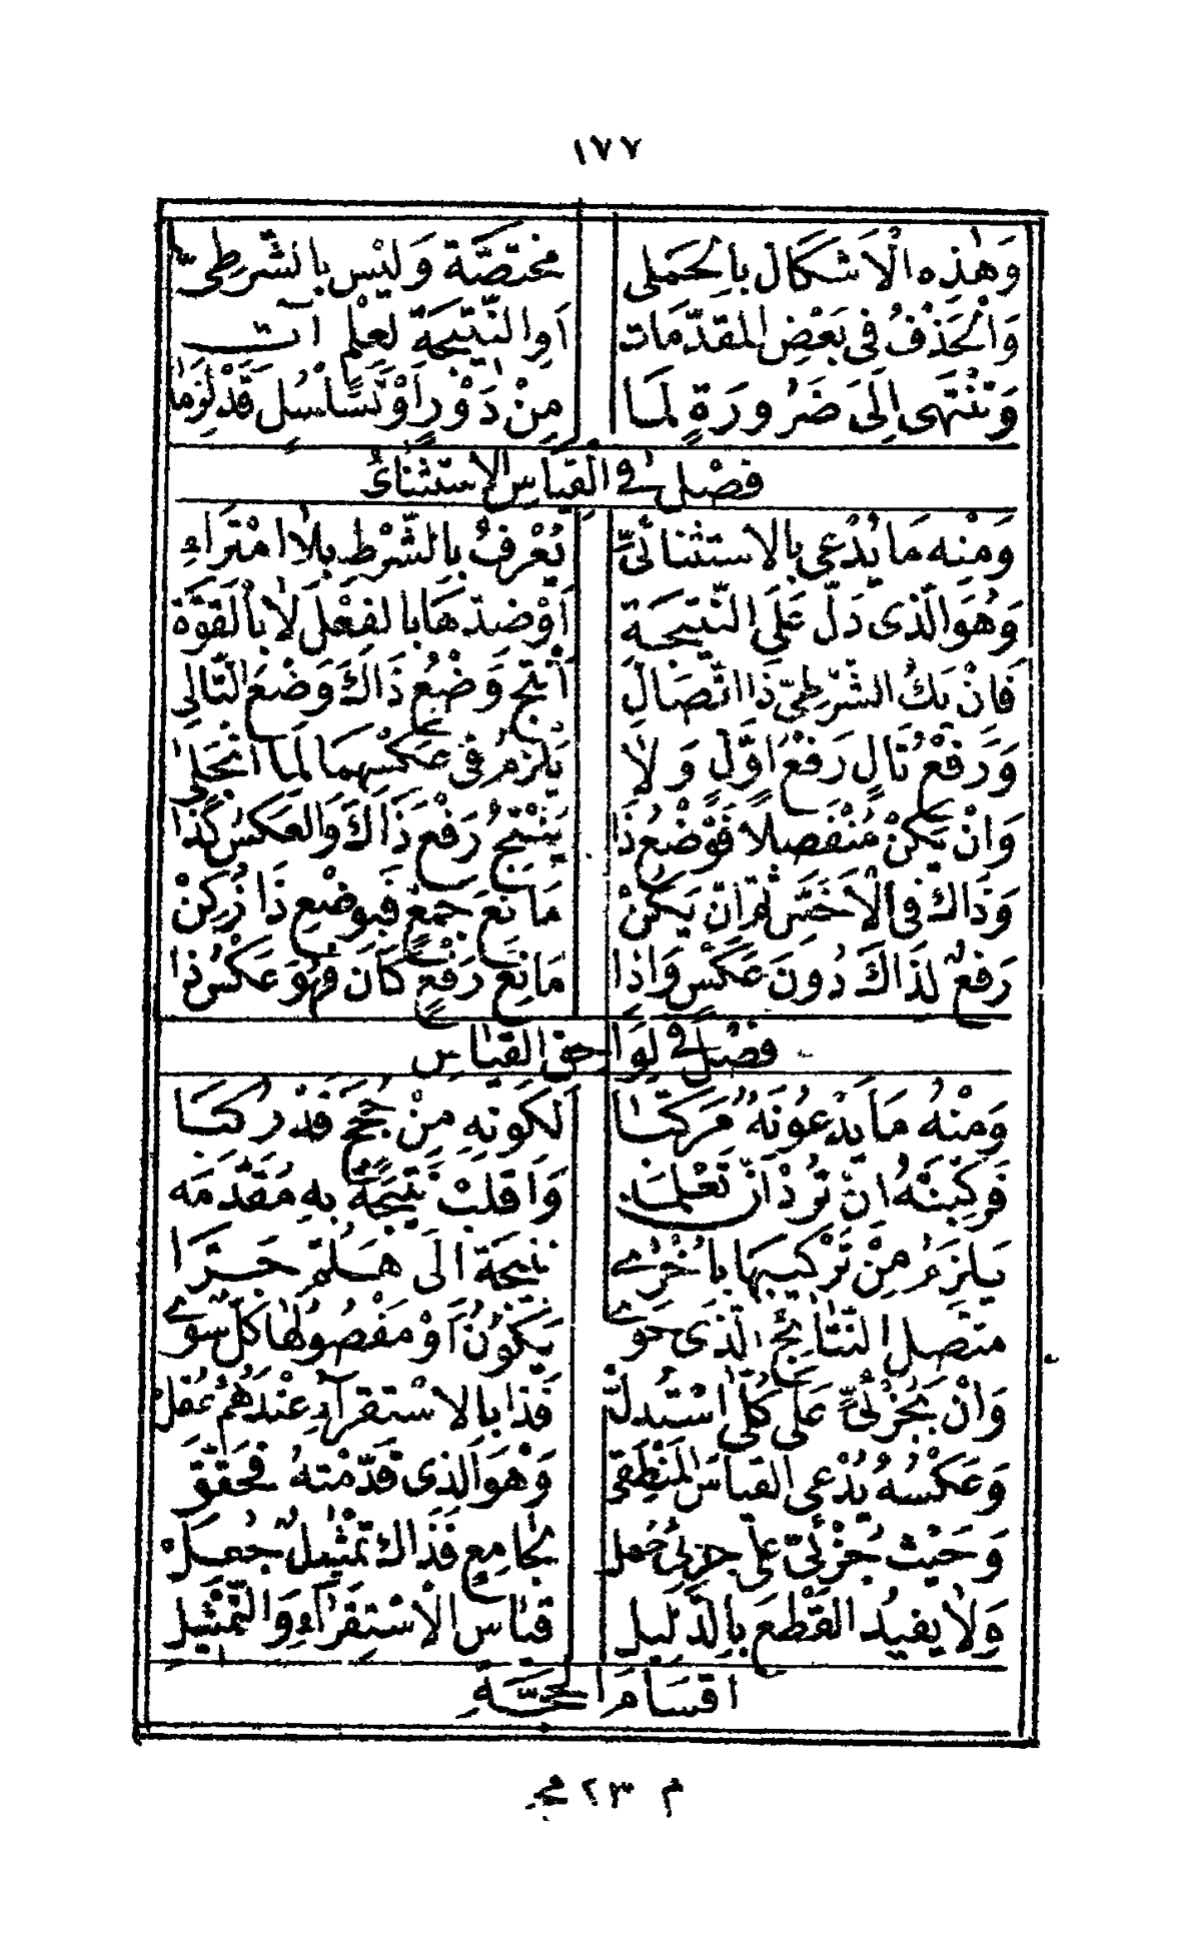 ١٧٧
وَهٰذِهِ الْاَشْكَالُ بِالْحَمْلِى مُخْتَصَّةٌ وَلَيْسَ بِالشَّرْطِىِّ
وَالْحَذْفُ فِى بَعْضِ الْمُقَدِّمَاتِ اَوِ النَّتِيجَةِ لِعِلْمٍ آتِ
وَتَنْتَهِى اِلَى ضَرُورَةٍ لِمَا مِنْ دَوْرٍ اَوْ تَسَلْسُلٍ قَدْ لَزِمَا
فَصْلٌ فِى الْقِيَاسِ الْاِسْتِثْنَائِى
وَمِنْهُ مَا يُدْعَى بِالْاِسْتِثْنَائِىِّ يُعْرَفُ بِالشَّرْطِ بِلَا امْتِرَاءِ
وَهُوَ الَّذِى دَلَّ عَلَى النَّتِيجَةِ اَوْ ضِدِّهَا بِالْفِعْلِ لَا بِالْقُوَّةِ
فَاِنْ يَكُ الشَّرْطِىُّ ذَا اتِّصَالِ اَنْتَجَ وَضْعُ ذَاكَ وَضْعَ التَّالِى
وَرَفْعُ تَالٍ رَفْعَ اَوَّلٍ وَلَا يَلْزَمُ فِى عَكْسِهِمَا لِمَا انْجَلَى
وَاِنْ يَكُنْ مُنْفَصِلًا فَوَضْعُ ذَا يُنْتِجُ رَفْعَ ذَاكَ وَالْعَكْسُ كَذَا
وَذَاكَ فِى الْاَخَصِّ ثُمَّ اِنْ يَكُنْ مَانِعَ جَمْعٍ فَبِوَضْعِ ذَا زُكِنْ
رَفْعٌ لِذَاكَ دُونَ عَكْسٍ وَاِذَا مَانِعَ رَفْعٍ كَانَ فَهْوَ عَكْسُ ذَا
فَصْلٌ فِى لَوَاحِقِ الْقِيَاسِ
وَمِنْهُ مَا يَدْعُونَهُ مُرَكَّبَا لِكَوْنِهِ مِنْ حُجَجٍ قَدْ رُكِّبَا
فَرَكِّبَنْهُ اِنْ تُرِدْ اَنْ تَعْلَمَهْ وَاقْلِبْ نَتِيجَةً بِهِ مُقَدِّمَهْ
يَلْزَمُ مِنْ تَرْكِيبِهَا بِاُخْرَى نَتِيجَةٌ اِلَى هَلُمَّ جَرَّا
مُتَّصِلَ النَّتَائِجِ الَّذِى حَوَى يَكُونُ اَوْ مَفْصُولَهَا كُلٌّ سَوَى
وَاِنْ بِجُزْئِىٍّ عَلَى كُلِّى اسْتُدِلْ فَذَا بِالْاِسْتِقْرَاءِ عِنْدَهُمْ عُقِلْ
وَعَكْسُهُ يُدْعَى الْقِيَاسَ الْمَنْطِقِى وَهْوَ الَّذِى قَدَّمْتُهُ فَحَقِّقِ
وَحَيْثُ جُزْئِىٌّ عَلَى جُزْئِى حُمِلْ بِجَامِعٍ فَذَاكَ تَمْثِيلٌ جُعِلْ
وَلَا يُفِيدُ الْقَطْعَ بِالدَّلِيلِ قِيَاسُ الْاِسْتِقْرَاءِ وَالتَّمْثِيلِ
اَقْسَامُ الْحُجَّةِ
م ٢٣ مج